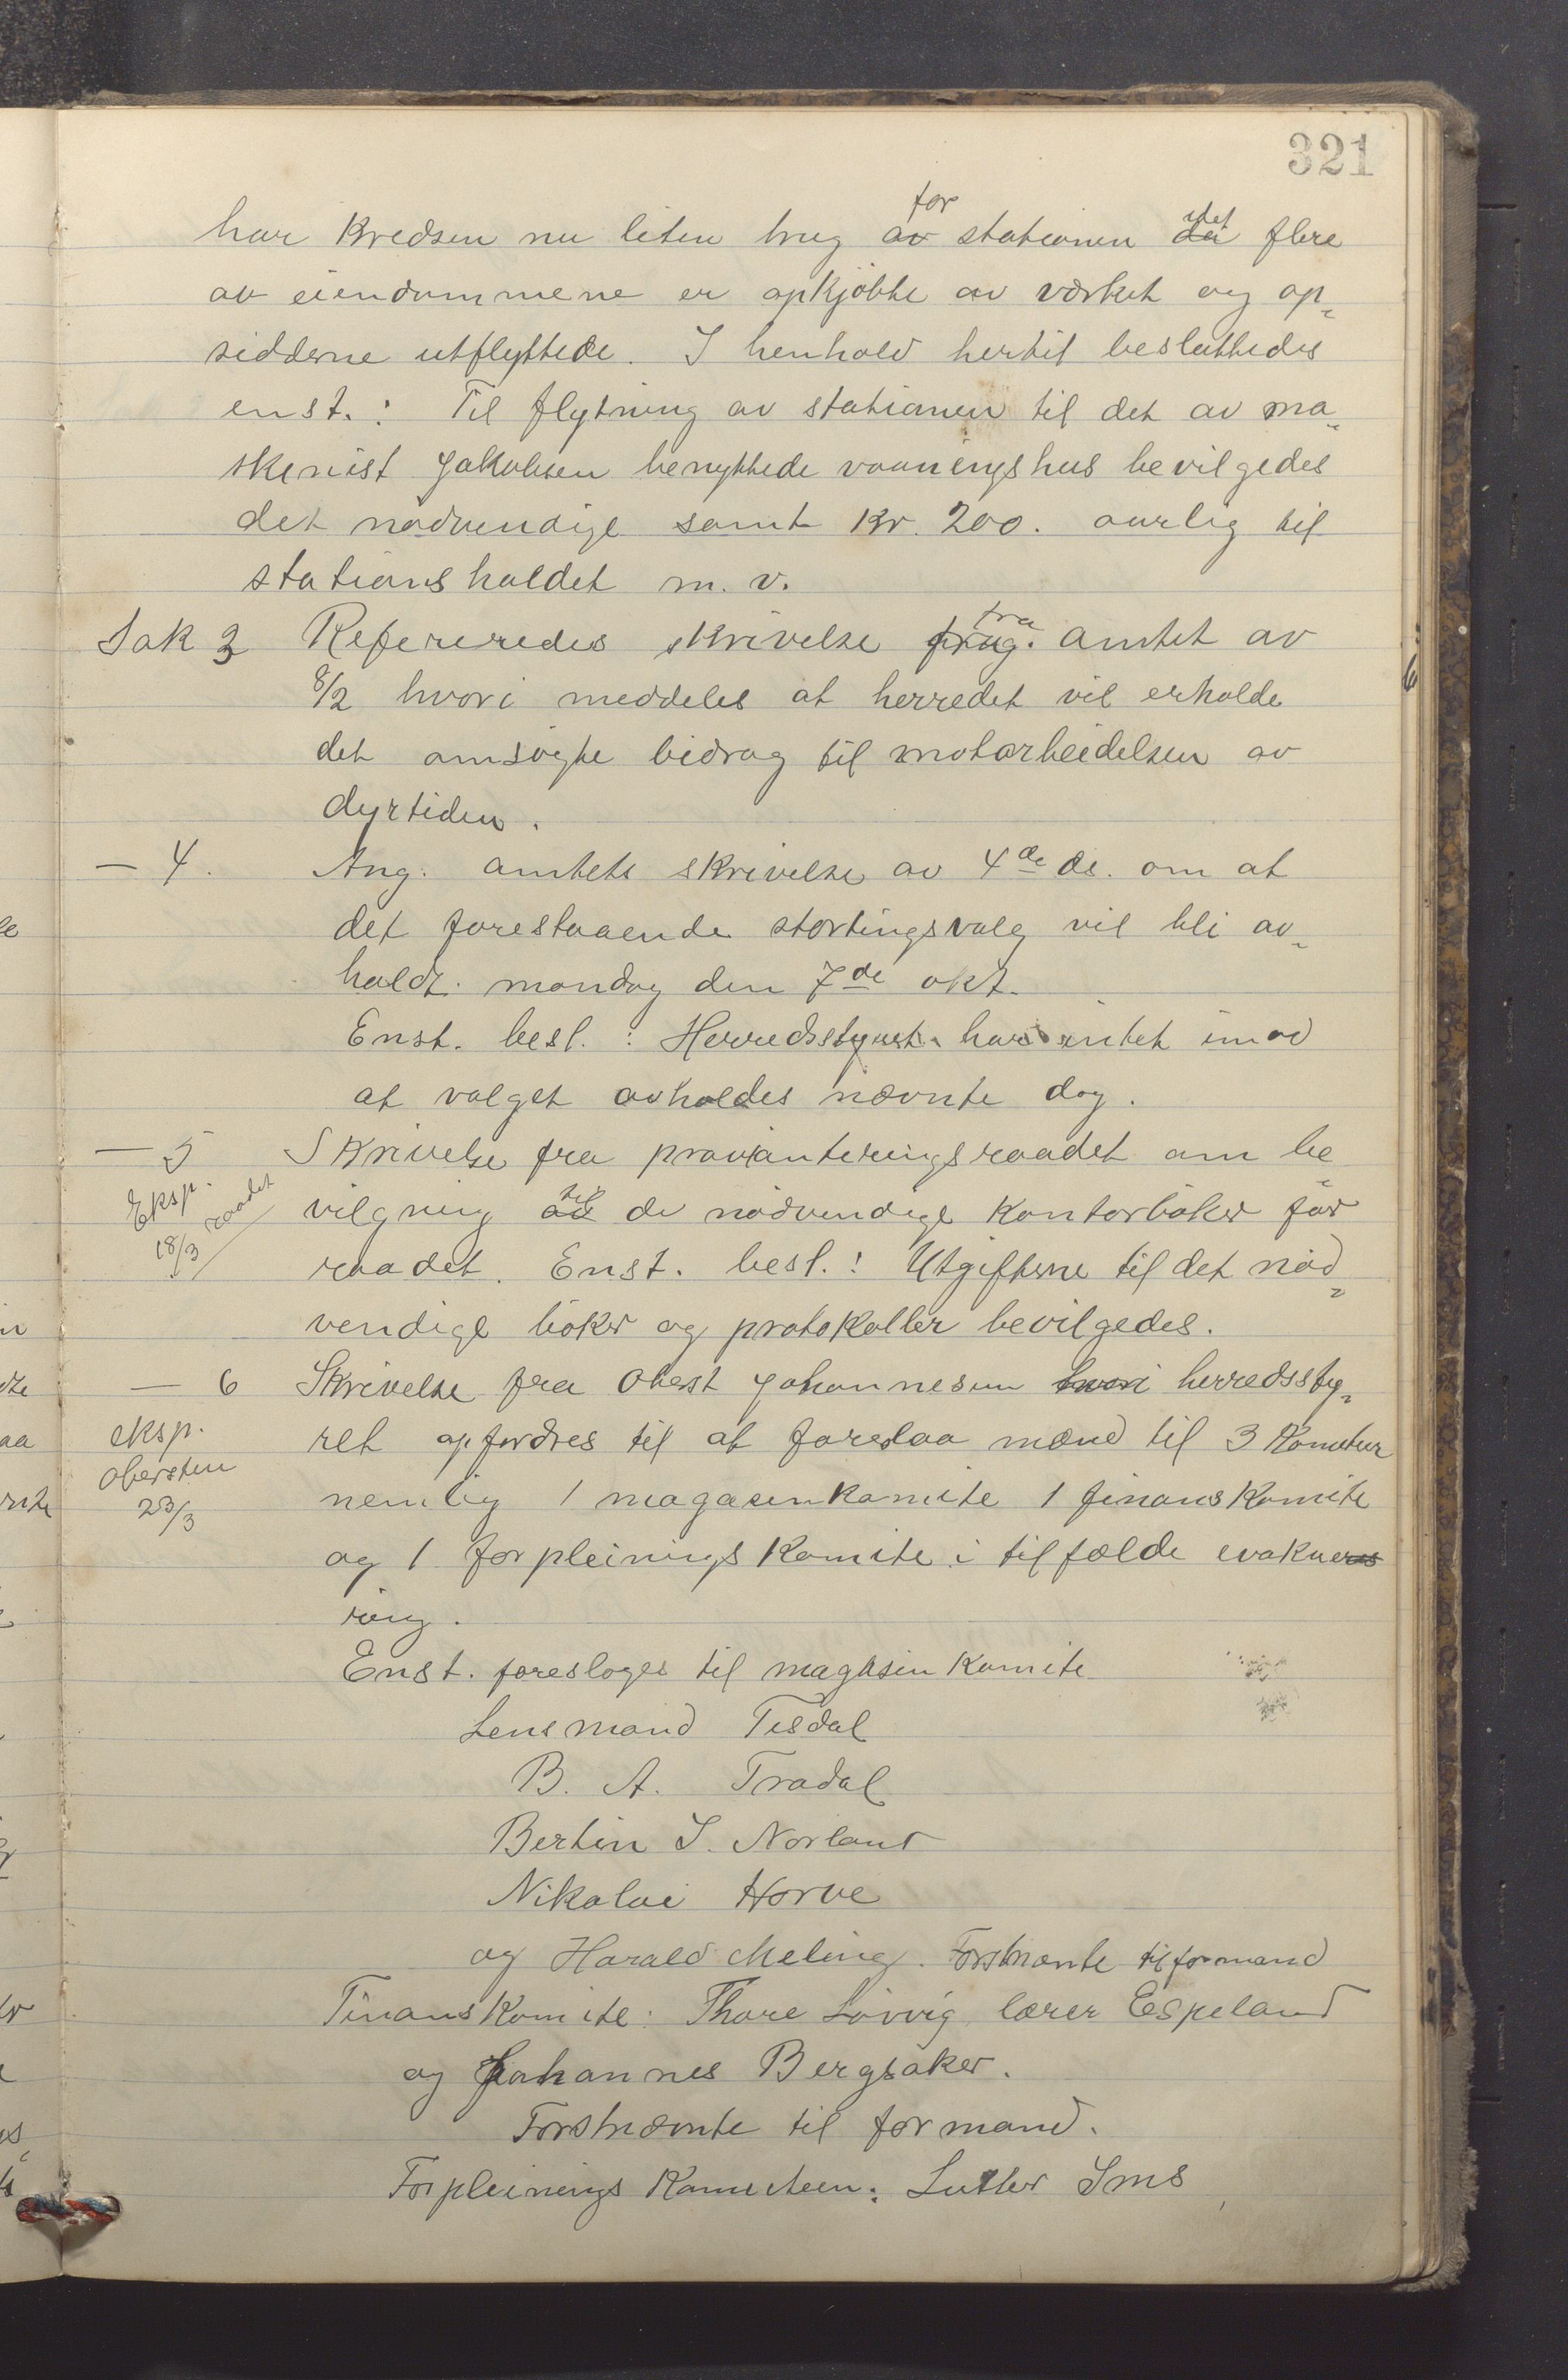 321
har kredsen nu liten brug av for stationen da idet flere
av eiendommene er opkjøbte av verket og op-
sidderne utflyttede. I henhold hertil besluttedes
enst.: Til flytning av stationen til det av ma-
skinist Jakobsen benyttede vaaningshus bevilgedes
det nødvendige samt Kr. 200. aarlig til
stationsholdet m. v.
Sak 3 Refereredes skrivelse fra amtet av
8/2 hvori meddeles at herredet vil erholde
det ansøgte bidrag til motarbeidelsen av
dyrtiden.
— 4. Ang. amtets skrivelse av 4de ds. om at
det forestaaende stortingsvalg vil bli av-
holdt mandag den 7de okt.
Enst. besl.: Herredsstyret har intet imod
at valget avholdes nævnte dag.
— 5 Skrivelse fra provianteringsraadet om be-
Eksp. raadet 18/3
vilgning av til de nødvendige kontorbøker for
raadet. Enst. besl.: Utgifterne til det nød-
vendige bøker og protokoller bevilgedes.
— 6 Skrivelse fra Oberst Johannesen hvori herredssty-
eksp. obersten 23/3
ret opfordres til at foreslaa mænd til 3 komiteer
nemlig 1 magasinkomite 1 finanskomite
og 1 forpleiningskomite i tilfælde evakue-
ring.
Enst. foresloges til magasinkomite
Lensmand Tisdal
B. A. Tradal
Bertin S. Norland
Nikolai Horve
og Harald Meling. Førstnævnte til formand
Finanskomite: Thore Løvvig lærer Espeland
og Johannes Bergsaker.
Førstnævnte til formand.
Forpleinings Komiteen: Luther Sms